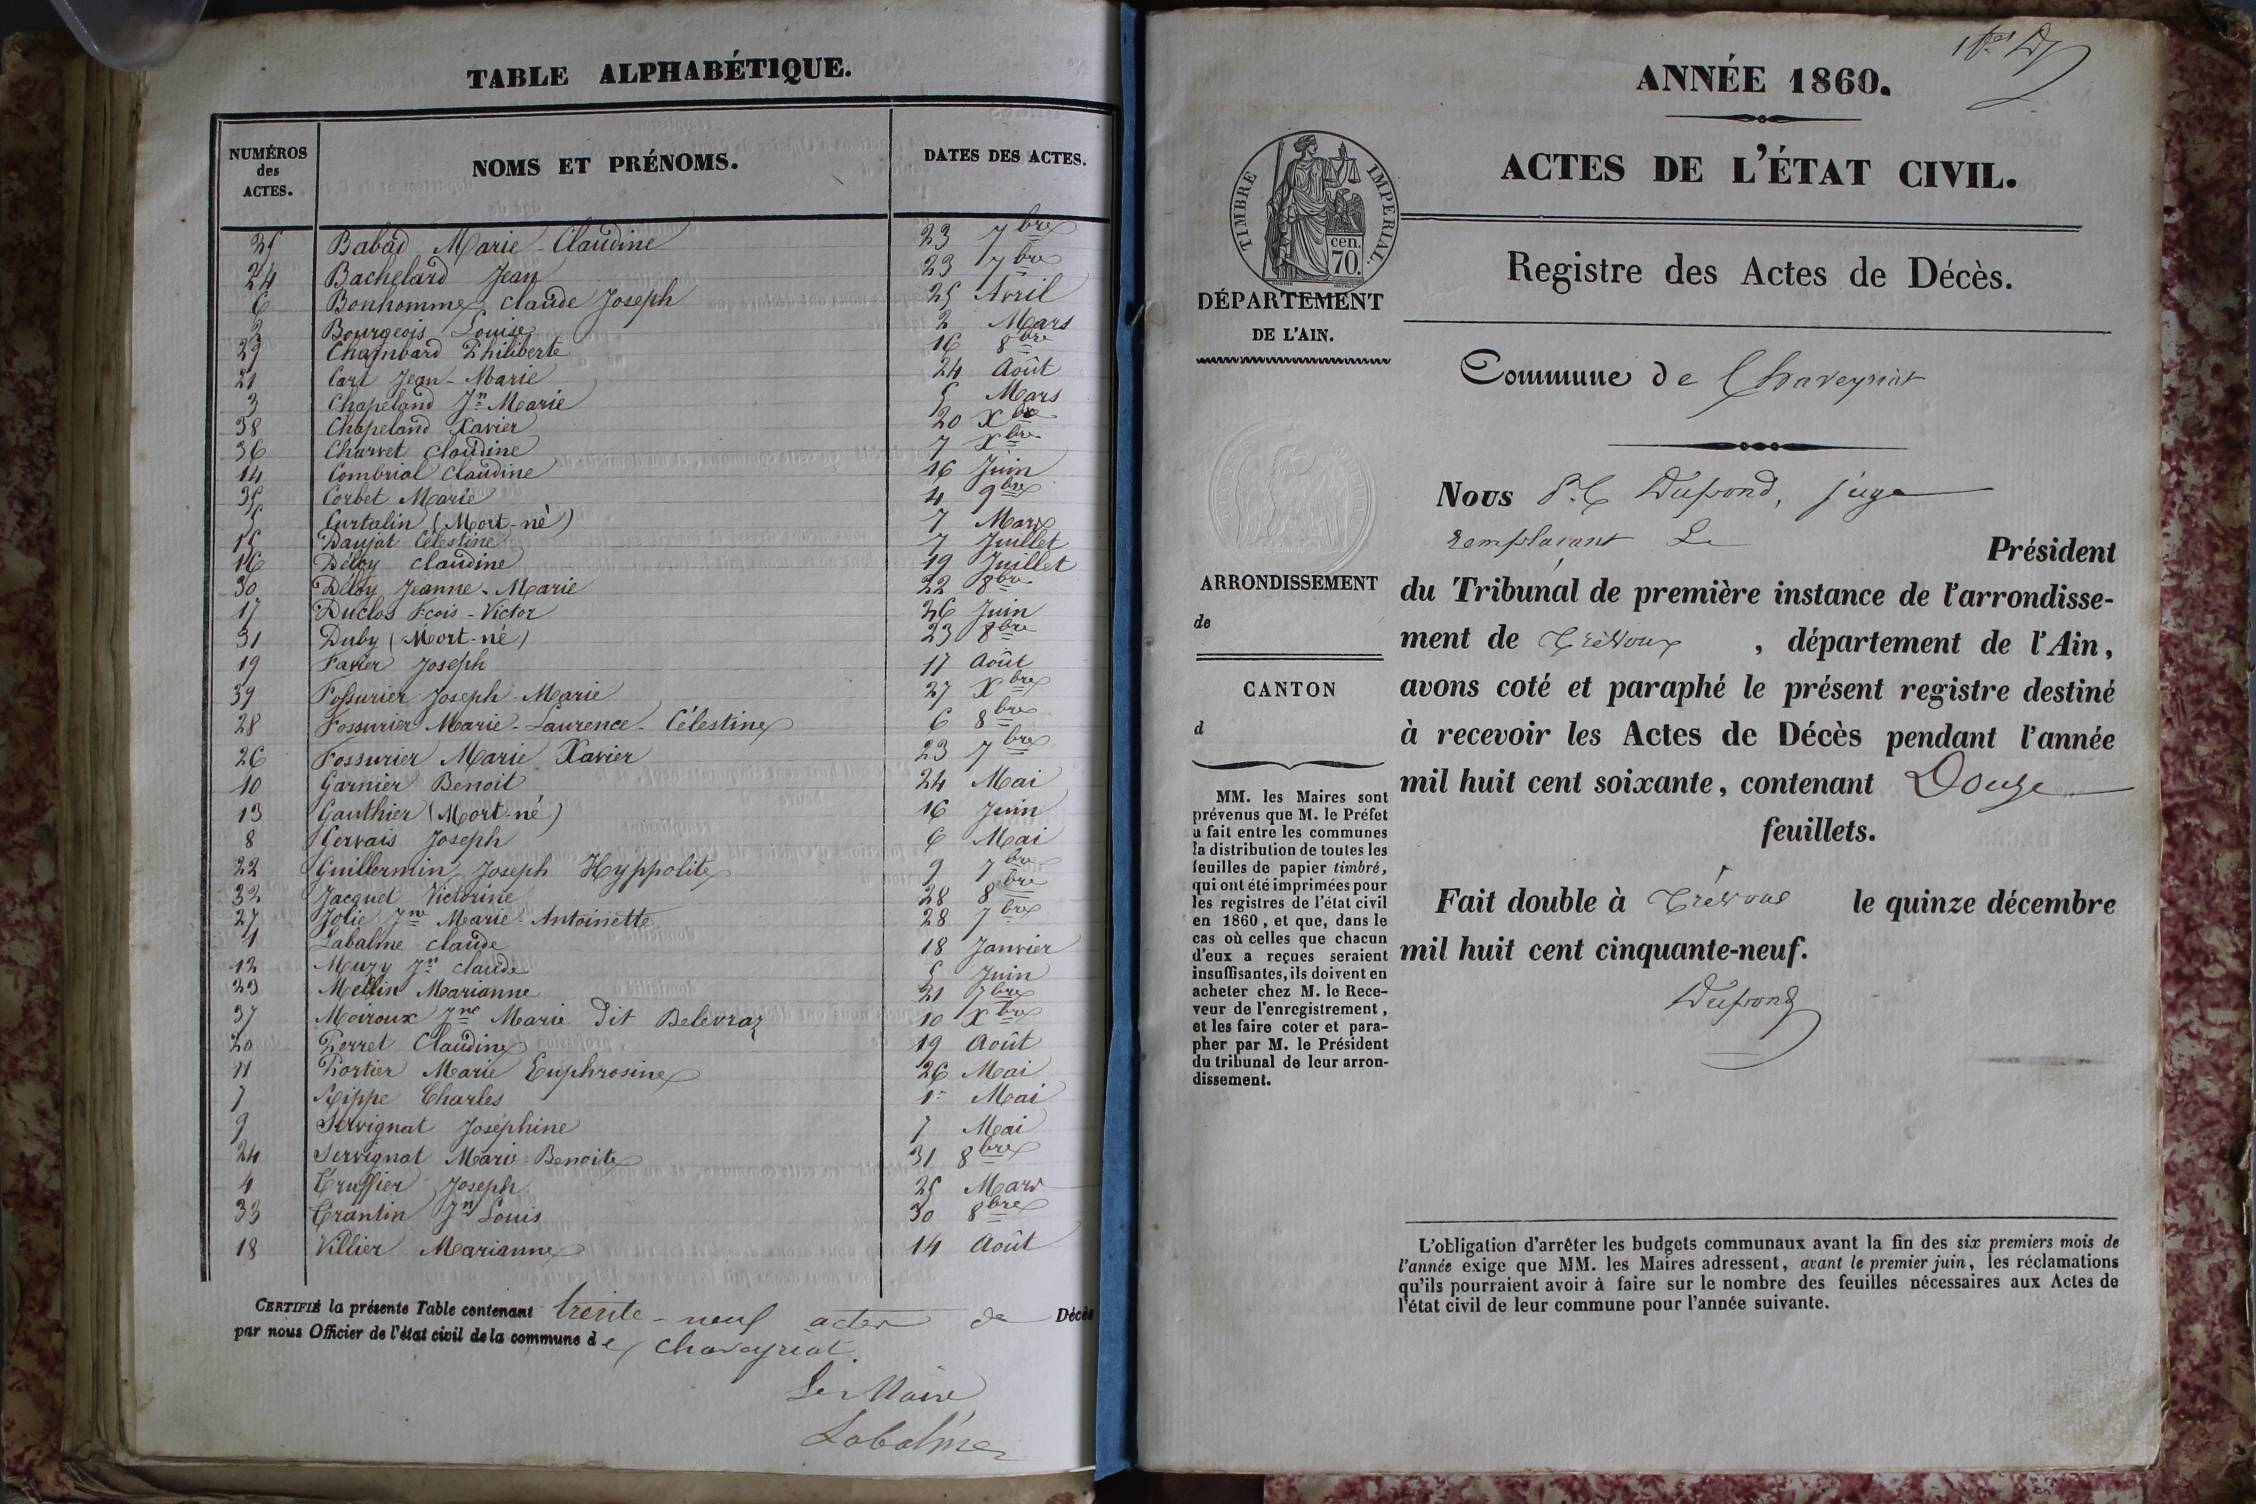 TABLE ALPHABÉTIQUE.
NUMÉROS des ACTES. NOMS ET PRÉNOMS. DATES DES ACTES.
25 Babad Marie-Claudine 23 7bre
24 Bachelard Jean 23 7bre
6 Bonhomme claude Joseph 25 Avril
2 Bourgeois Louise 2 Mars
29 Chambard Philiberte 16 8bre
21 Cart Jean-Marie 24 Août
3 Chapeland Jn Marie 5 Mars
38 Chapeland Xavier 20 Xbre
36 Charvet Claudine 7 Xbre
14 Combrial Claudine 16 Juin
35 Corbet Marie 4 9bre
5 Curtalin (Mort-né) 7 Mars
15 Daujat Célestine 7 Juillet
16 Déloy claudine 19 Juillet
30 Déloy Jeanne-Marie 22 8bre
17 Duclos Fcois-Victor 26 Juin
31 Duby (Mort-né) 23 8bre
19 Favier Joseph 17 Août
39 Fossurier Joseph-Marie 27 Xbre
28 Fossurier Marie-Laurence-Célestine 6 8bre
26 Fossurier Marie Xavier 23 7bre
10 Garnier Benoit 24 Mai
13 Gauthier (Mort-né) 16 Juin
8 Gervais Joseph 6 Mai
22 Guillermin Joseph Hyppolite 9 7bre
32 Jacquet Victorine 28 8bre
27 Jolie Jne Marie-Antoinette 28 7bre
1 Labalme claude 18 Janvier
12 Muzy Jn claude 5 Juin
23 Mellin Marianne 21 7bre
37 Moiroux Jne Marie dit Belevraz 10 Xbre
20 Perret Claudine 19 Août
11 Portier Marie Euphrosine 26 Mai
7 Rippe Charles 1er Mai
9 Servignat Joséphine 7 Mai
24 Servignat Marie-Benoite 31 8bre
4 Truffier Joseph 25 Mars
33 Trantin Jn Louis 30 8bre
18 Villier Marianne 14 Août
CERTIFIÉ la présente Table contenant trente-neuf actes de Décès
par nous Officier de l'état civil de la commune de chaveyriat.
Le Maire
Labalme
ANNÉE 1860.
ACTES DE L'ÉTAT CIVIL.
TIMBRE IMPERIAL.
cen.
70.
Registre des Actes de Décès.
DÉPARTEMENT
DE L'AIN.
Commune de Chaveyriat
Nous P.C Dufrond, juge
remplacant Le Président
du Tribunal de première instance de l'arrondisse-
ment de Trévoux, département de l'Ain,
avons coté et paraphé le présent registre destiné
à recevoir les Actes de Décès pendant l'année
mil huit cent soixante, contenant Douze
feuillets.
Fait double à Trévoux le quinze décembre
mil huit cent cinquante-neuf.
Dufrond
ARRONDISSEMENT
de
CANTON
d
MM. les Maires sont
prévenus que M. le Préfet
a fait entre les communes
la distribution de toutes les
feuilles de papier timbré,
qui ont été imprimées pour
les registres de l'état civil
en 1860, et que, dans le
cas où celles que chacun
d'eux a reçues seraient
insuffisantes, ils doivent en
acheter chez M. le Rece-
veur de l'enregistrement,
et les faire coter et para-
pher par M. le Président
du tribunal de leur arron-
dissement.
L'obligation d'arrêter les budgets communaux avant la fin des six premiers mois de
l'année exige que MM. les Maires adressent, avant le premier juin, les réclamations
qu'ils pourraient avoir à faire sur le nombre des feuilles nécessaires aux Actes de
l'état civil de leur commune pour l'année suivante.